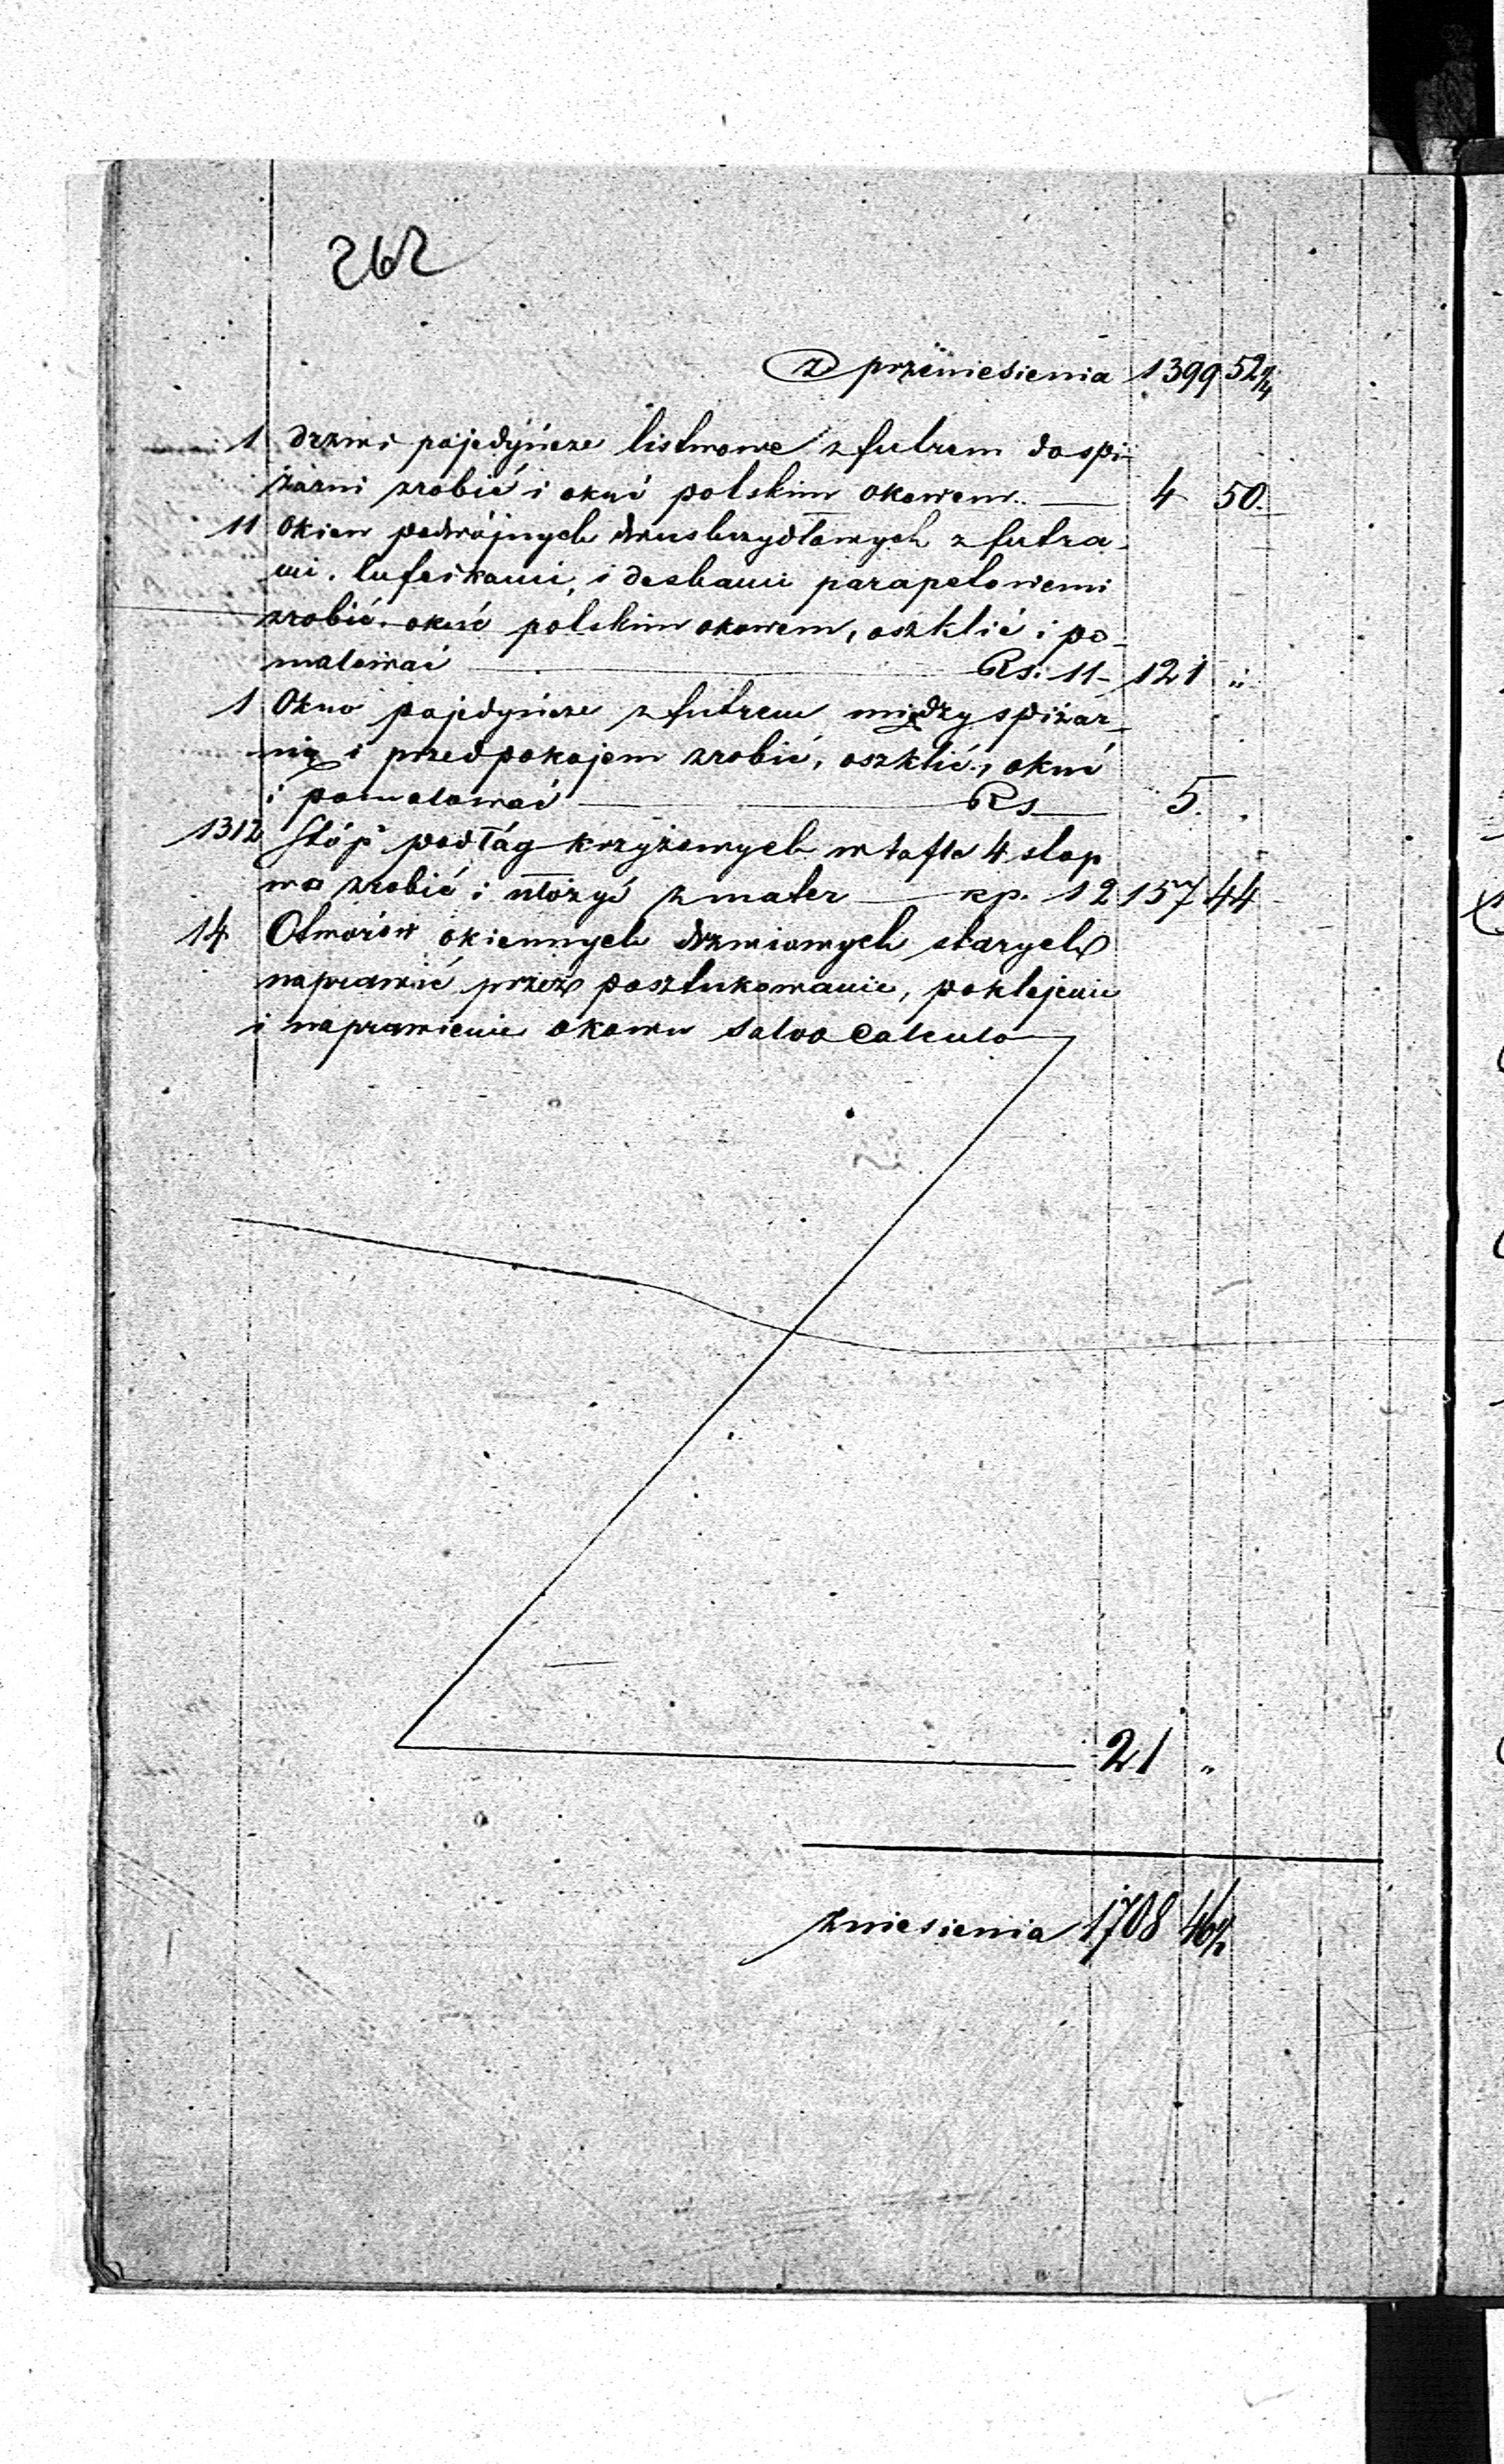 262
Z przeniesienia 1399 52 1/4
1 drzwi pojedyńcze listwowe z futrem do spi-
żarni zrobić i okuć polskim okowem. — 4 50.
11 Okien podwójnych dwuskrzydłowych z futra-
mi, lufcikami, i deskami parapetowemi
zrobić, okuć polskim okowem, oszklić i po-
malować — Rs: 11 - 121 "
1 Okno pojedyńcze z futrem między spiżar-
nią i przedpokojem zrobić, oszklić, okuć
i pomalować — Rs — 5. .
1312 Stóp podłóg krzyżowych w tafle 4 stop
wa zrobić i ułożyć z mater — kp. 12 157 44
14 Otworów okiennych drzwiowych starych
naprawić przez posztukowanie, poklejenie
i naprawienie okowu Salvo Calculo
21 "
Zniesienia 1708 46